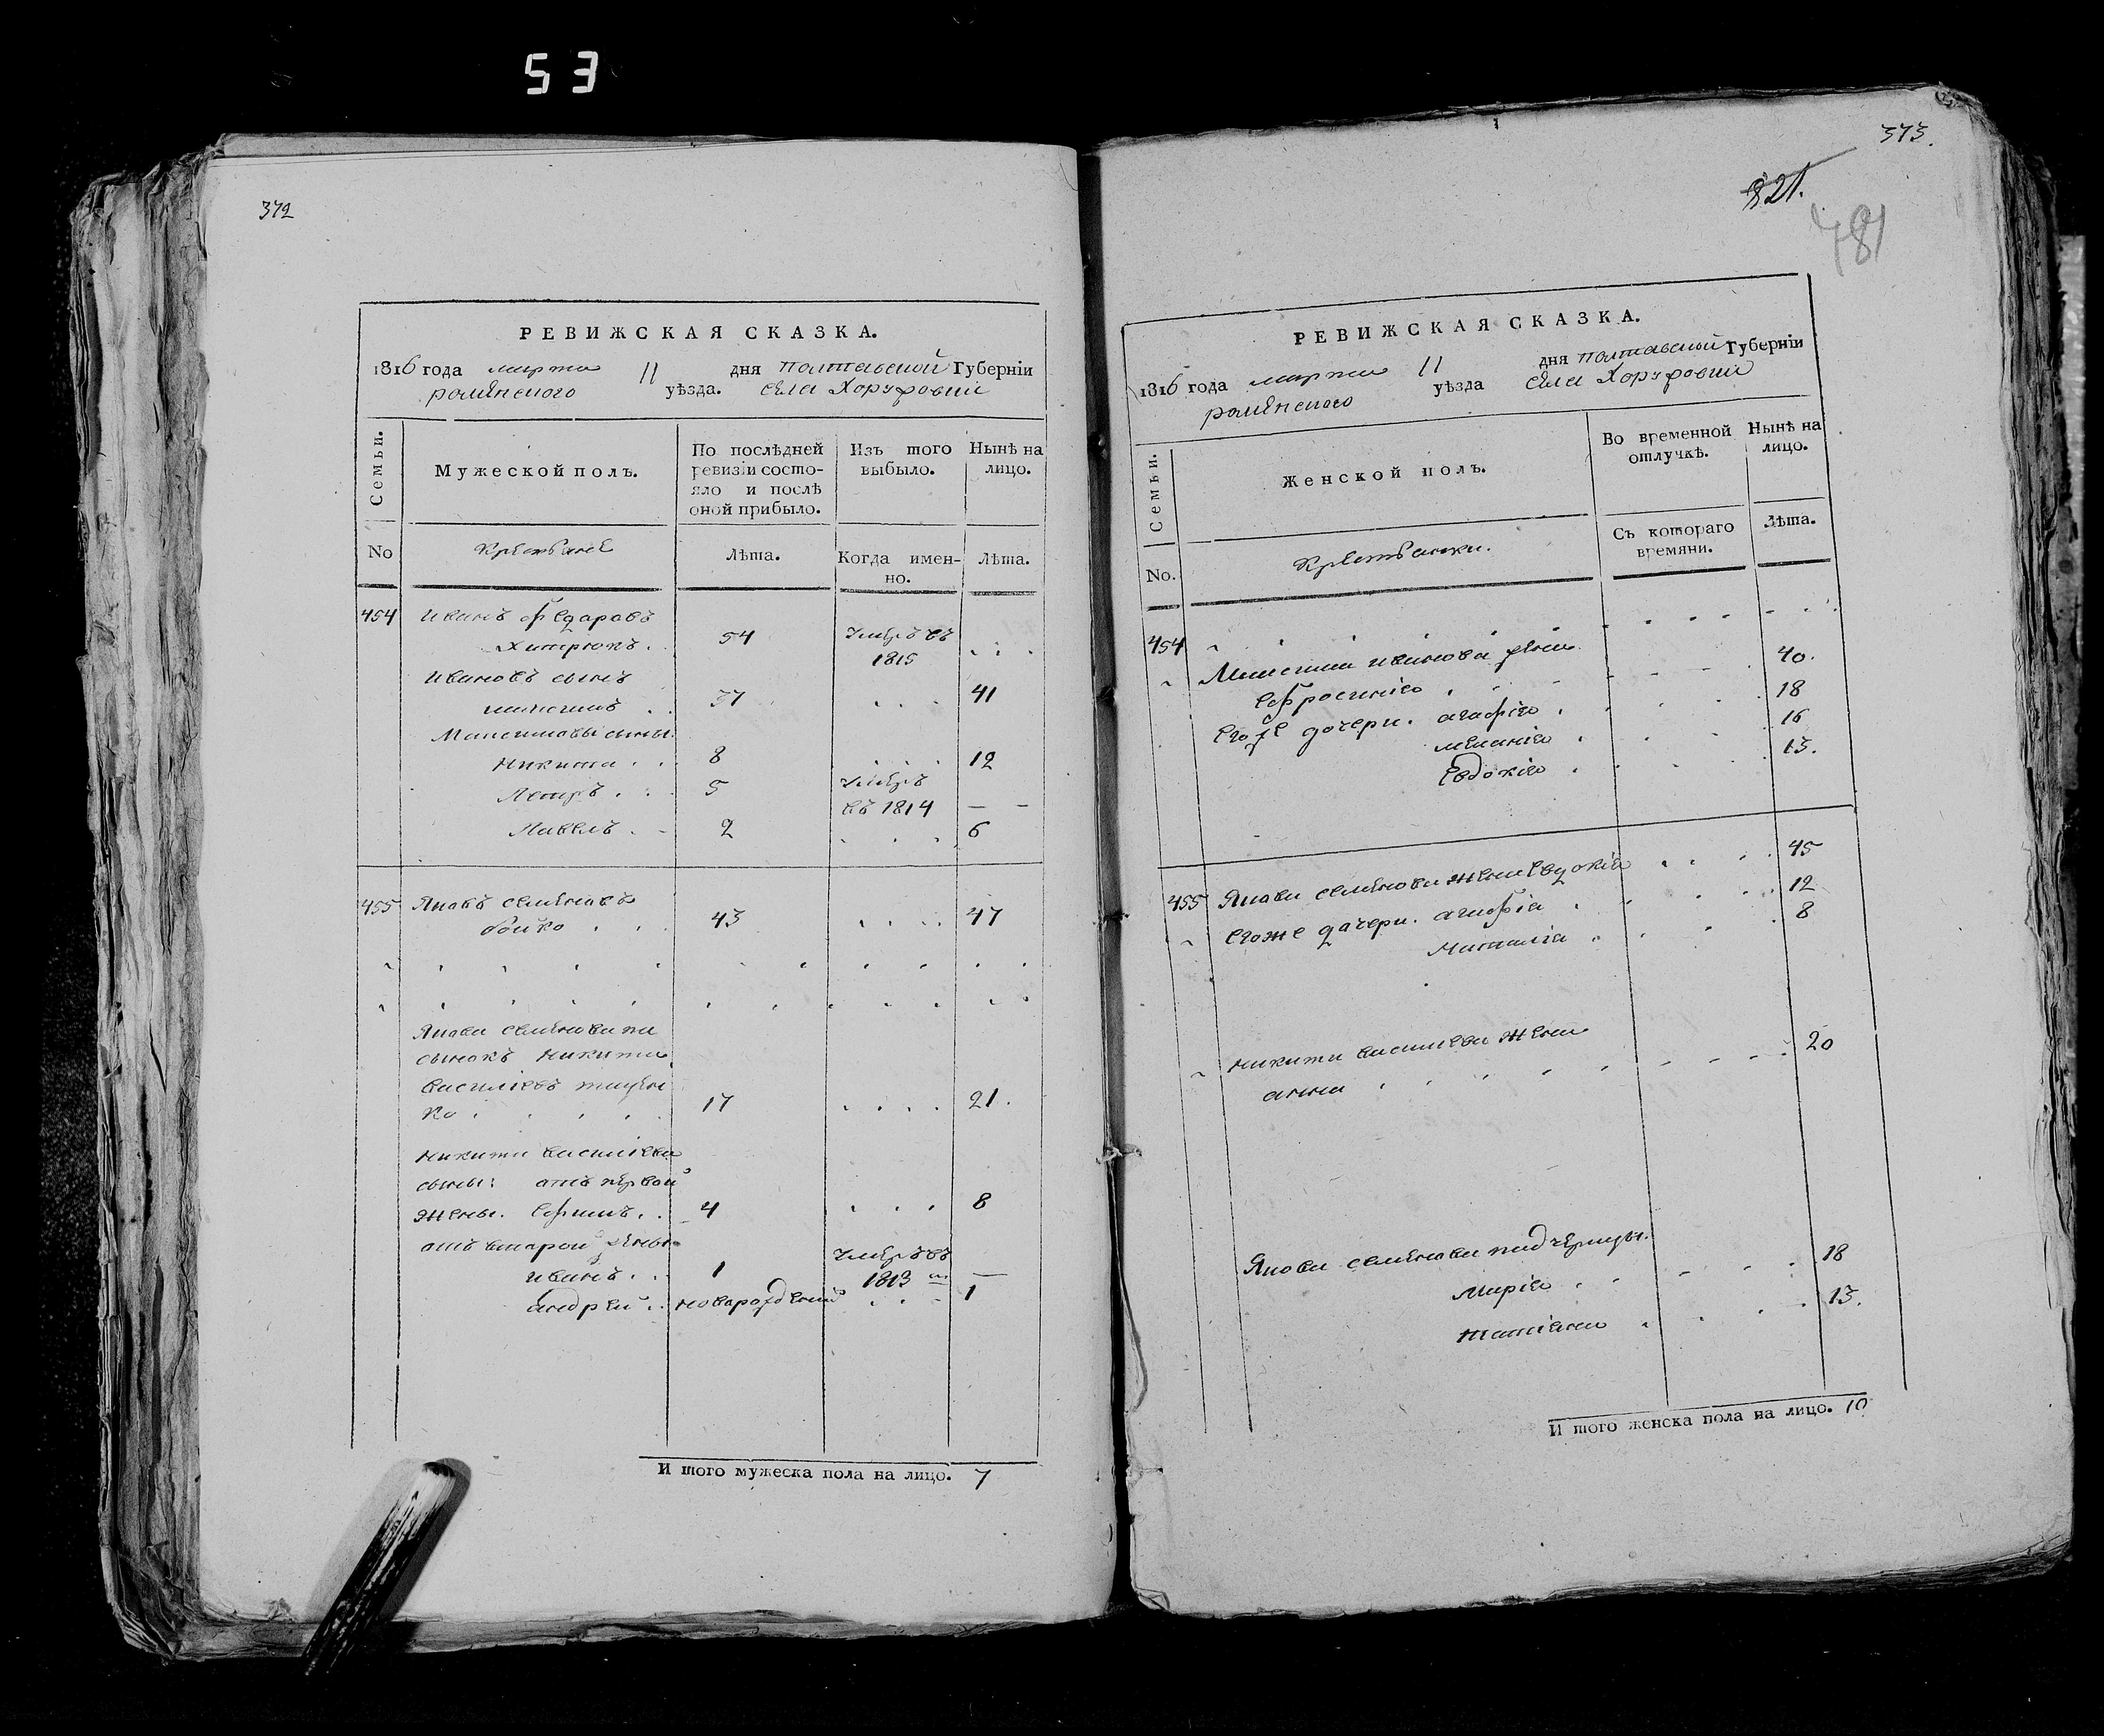 53
372
РЕВИЖСКАЯ СКАЗКА.
1816 года марта 11 дня Полтавской Губерніи
роменского уѣзда. села Хоружовки
Семьи.
Мужеской полъ.
По послѣдней ревизіи состояло и послѣ оной прибыло.
Изъ того выбыло.
Нынѣ на лицо.
No
Крестьяне
Лѣта.
Когда именно.
Лѣта.
454 Иванъ Федаровъ
Хитрюкъ . 54 Умеръ въ 1815 . . .
Ивановъ сынъ
максимъ . . 37 . . . 41
Максимовы сыны.
Никита . . 8 . . . . 12
Петръ . . 5 Умеръ въ 1814 — —
Павелъ . . 2 . . . . 6
455 Яковъ Семеновъ
бойко . . . 43 . . . . 47
Якова Семенова па
сынокъ Никита
василіевъ
ко . . . . . 17 . . . . 21.
Никиты василіева
сыны: отъ первой
жены. Ефимъ . . 4 . . . 8
отъ второй жены
иванъ . . 1 Умеръ въ 1813 м —
андрей . . новорожденной . . . 1
И того мужеска пола на лицо. 7
373.
321.
781
РЕВИЖСКАЯ СКАЗКА.
1816 года марта 11 дня Полтавской Губерніи
роменского уѣзда села Хоружовки
Семьи.
Женской полъ.
Во временной отлучкѣ.
Нынѣ на лицо.
No.
Крестьянки.
Съ котораго времяни.
Лѣта.
454
Максима иванова жена
Ефросинія . . . 40.
Егоже дочери. агафія . 18
меланія . 16
Евдокія . 13.
455 Якова семенова жена Евдокія . . . . 45
Егоже дочери. агафія . . . 12
Наталія . . . . 8
Никиты василіева жена
анна . . . . . . . 20
Якова семенова падчерицы.
Марія . . . . 18
татіяна . . . . 13.
И того женска пола на лицо. 10